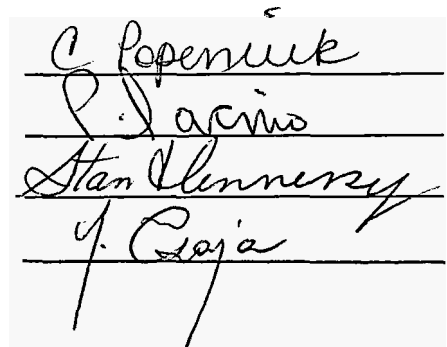 C Popeniuk
P. Iacino
Stan Hennessy
Y. Czaja